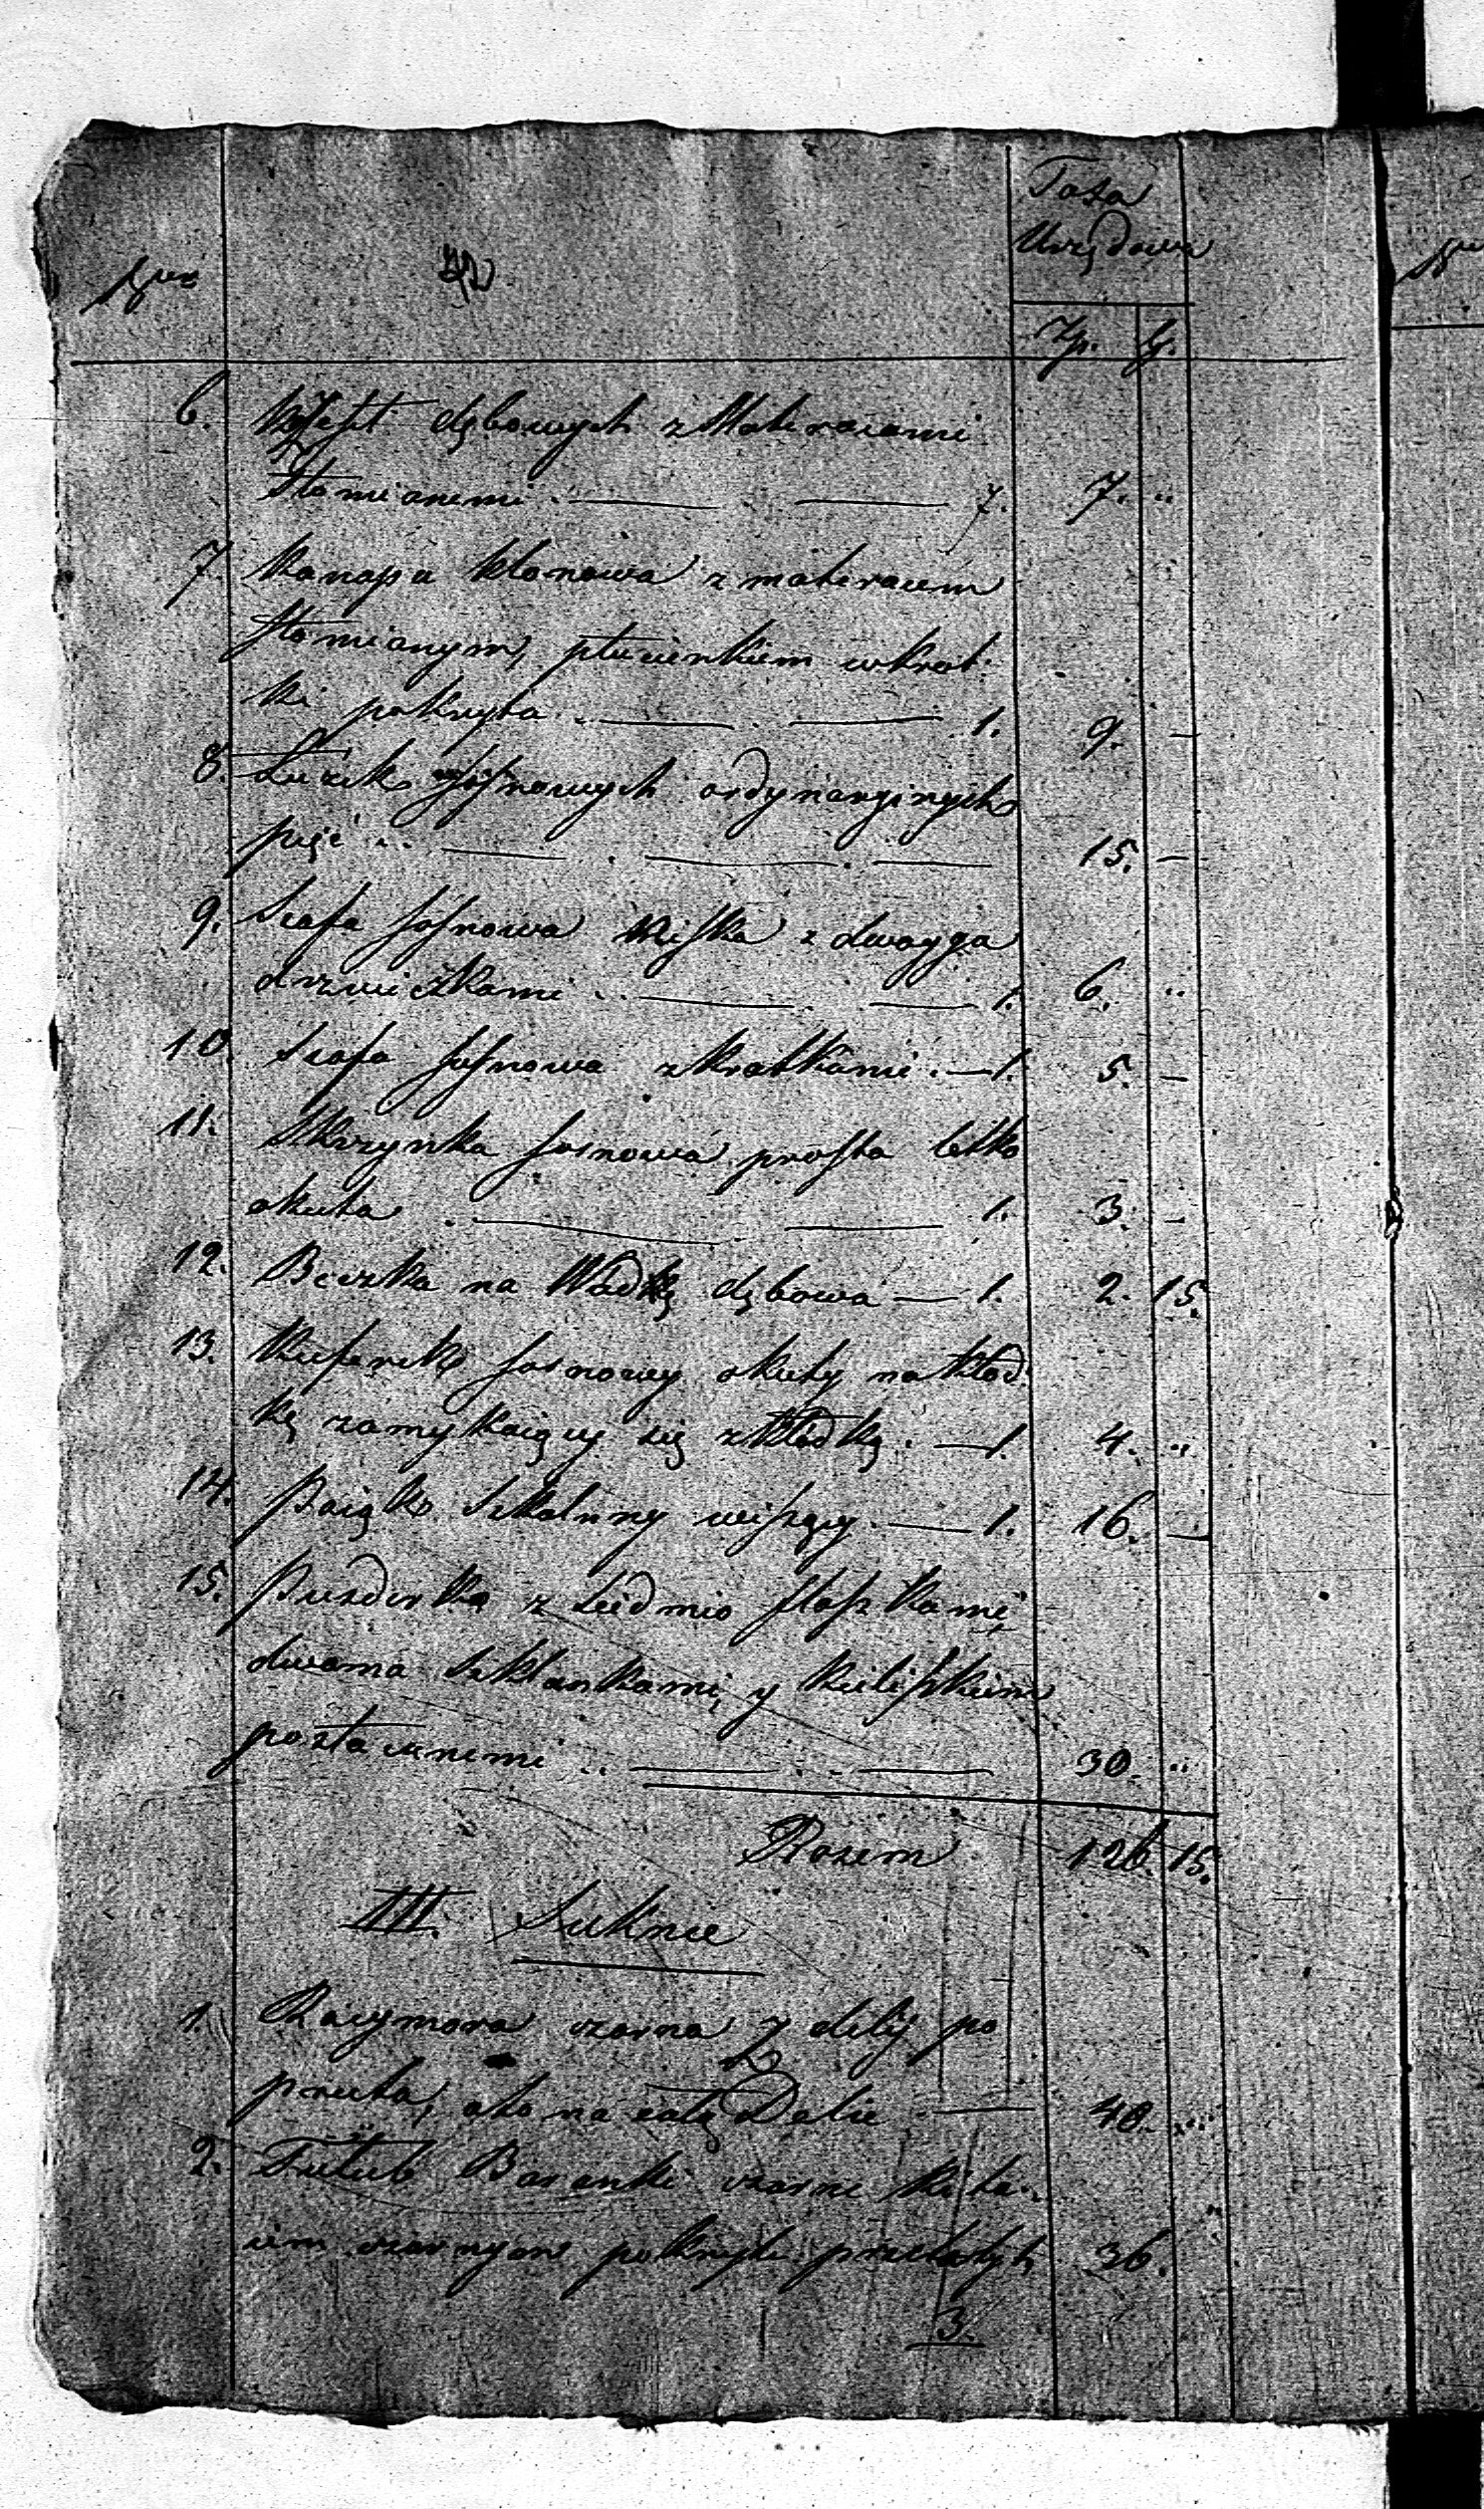 Taxa
Urzędowa
Nro
Zp. g.
6. Krzeseł dębowych z Materacami
słomianemi . — — 7. 7. "
7. Kanapa klonowa z materacem
słomianym, płucienkiem w krat:
ki pokryta . — — 1. 9. —
8. Łużek sosnowych ordynaryinych
pięć . . — — — 15. —
9. Szafa sosnowa niska z dwoyga
drzwiczkami . . — — 1. 6. "
10. Szafa sosnowa z kratkami . — 1. 5. —
11. Skrzynka sosnowa prosta letko
okuta . — — 1. 3. —
12. Beczka na Wodkę dębowa — 1. 2. 15.
13. Kuferek sosnowy okuty na kłod
kę zamykaiący się z kłodką . — 1. 4. "
14. Paiąk szkalnny wiszący . — 1. 16. —
15. Puzderko z siedmio flaszkami
dwoma szklankami, y kieliszkiem
pozłacanemi . . — — 30. "
Razem 126. 15.
III. Suknie
1. Kacymora czarna z delij po
pruta, ato na całą Delie — 40. "
2. Tułub Baranki czarne kita:
iem czarnym pokryte przetartych 36.
3.